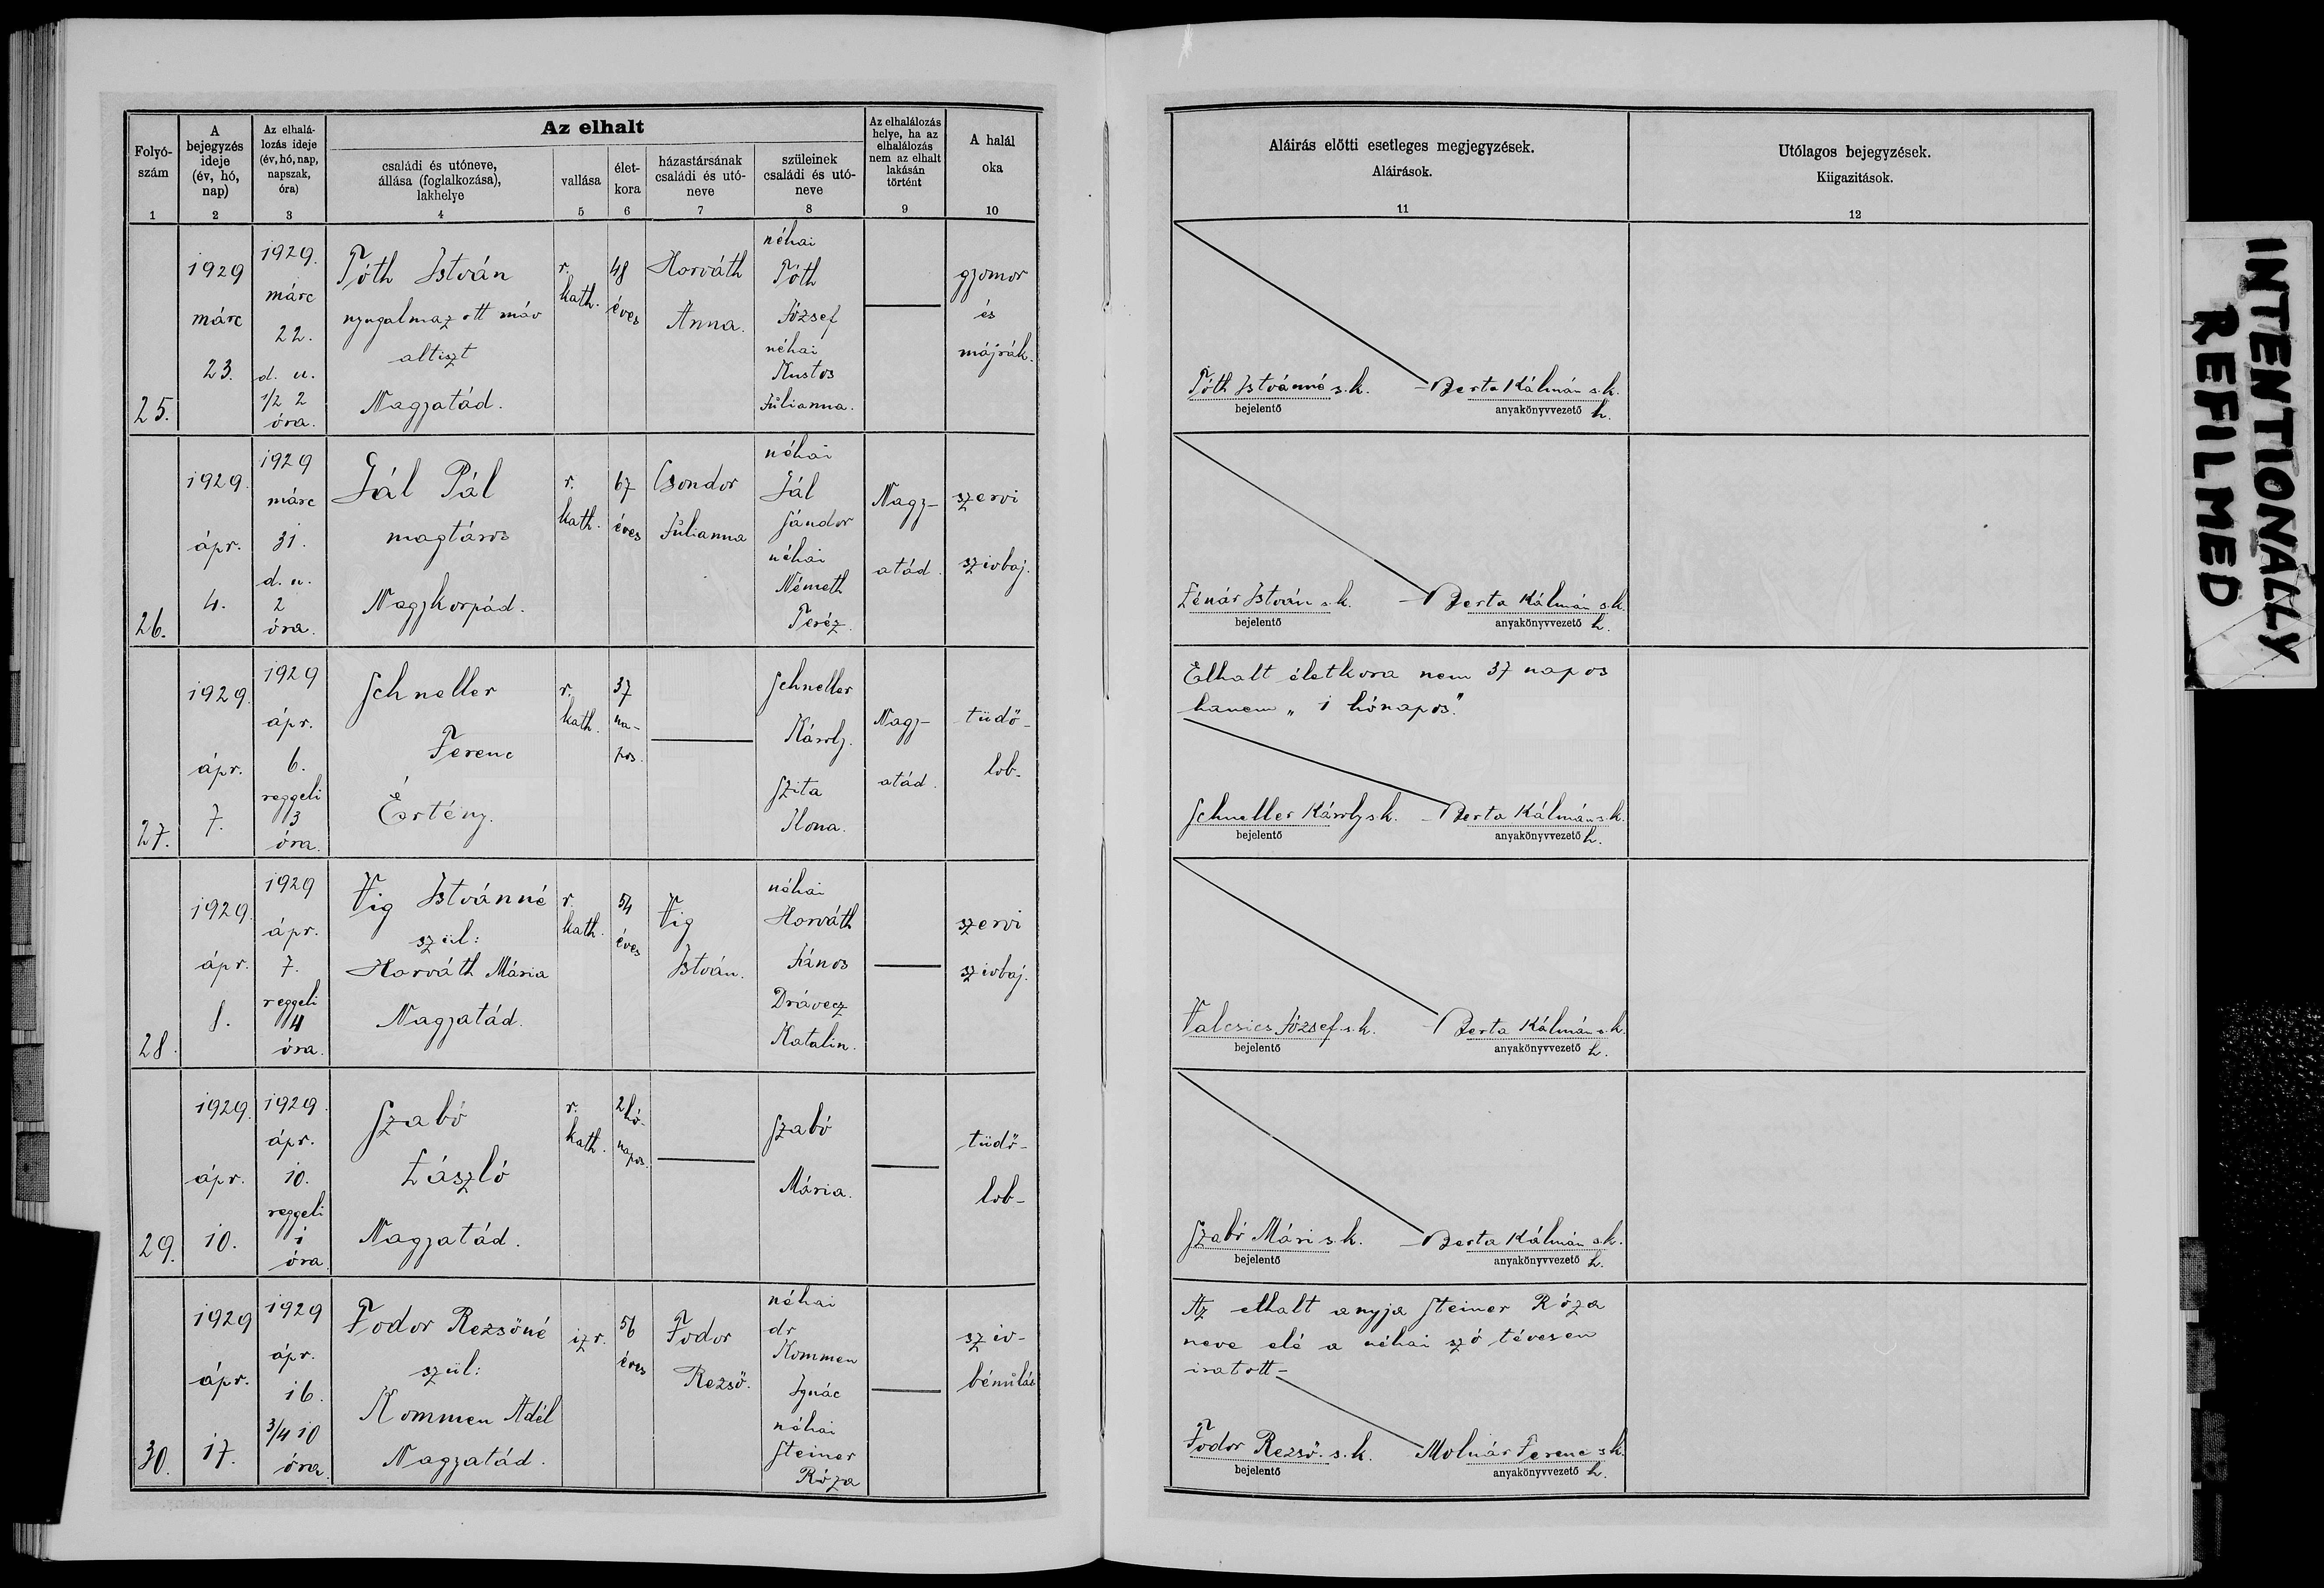 Folyó-
szám
1
A
bejegyzés
ideje
(év, hó,
nap)
2
Az elhalá-
lozás ideje
(év, hó, nap,
napszak,
óra)
3
Az elhalt
családi és utóneve,
állása (foglalkozása),
lakhelye
4
vallása
5
élet-
kora
6
házastársának
családi és utó-
neve
7
szüleinek
családi és utó-
neve
8
Az elhalálozás
helye, ha az
elhalálozás
nem az elhalt
lakásán
történt
9
A halál
oka
10
Aláirás előtti esetleges megjegyzések.
Aláirások.
11
Utólagos bejegyzések.
Kiigazitások.
12
25.
1929
márc
23.
1929.
márc
22.
d. u.
1/2 2
óra.
Tóth István
nyugalmazott máv
altiszt
Nagyatád.
r.
kath.
48
éves
Horváth
Anna.
néhai
Tóth
József
néhai
Kustos
Julianna.
gyomor
és
májrák.
Tóth Istvánné s. k.
bejelentő
Berta Kálmán s. k.
anyakönyvvezető h.
26.
1929.
ápr.
4.
1929
márc
31.
d. u.
2
óra.
Gál Pál
magtáros
Nagykorpád.
r.
kath.
67
éves
Csondor
Julianna
néhai
Gál
Sándor
néhai
Németh
Teréz.
Nagy-
atád.
szervi
szivbaj.
Lénár István s. k.
bejelentő
Berta Kálmán s. k.
anyakönyvvezető h.
27.
1929.
ápr.
7.
1929
ápr.
6.
reggeli
3
óra.
Schneller
Ferenc
Értény.
r.
kath.
37
na-
pos.
Schneller
Károly.
Szita
Ilona.
Nagy-
atád.
tüdő-
lob-
Elhalt életkora nem 37 napos
hanem „1 hónapos".
Schneller Károly s. k.
bejelentő
Berta Kálmán s. k.
anyakönyvvezető h.
28.
1929.
ápr.
8.
1929
ápr.
7.
reggeli
4
óra.
Vig Istvánné
szül:
Horváth Mária
Nagyatád.
r.
kath.
54
éves
Vig
István.
néhai
Horváth
János
Drávecz
Katalin.
szervi
szivbaj.
Valcsics József s. k.
bejelentő
Berta Kálmán s. k.
anyakönyvvezető h.
29.
1929.
ápr.
10.
1929.
ápr.
10.
reggeli
1
óra.
Szabó
László
Nagyatád.
r.
kath.
2 hó-
napos.
Szabó
Mária.
tüdő-
lob-
Szabó Mári s. k.
bejelentő
Berta Kálmán s. k.
anyakönyvvezető h.
30.
1929
ápr.
17.
1929
ápr.
16.
3/4 10
óra.
Fodor Rezsőné
szül:
Kommen Adél
Nagyatád.
izr.
56
éves
Fodor
Rezső.
néhai
dr
Kommen
Ignác
néhai
Steiner
Róza
sziv-
bénulás
Az elhalt anyja Steiner Róza
neve elé a néhai szó tévesen
iratott-
Fodor Rezső. s. k.
bejelentő
Molnár Ferenc s. k.
anyakönyvvezető h.
INTENTIONALLY
REFILMED